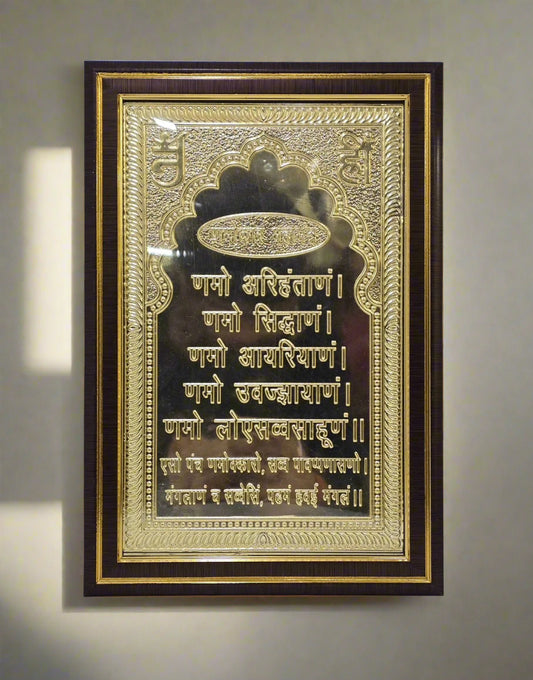 णमो अरिहंताणं।
णमो सिद्धाणं।
णमो आयरियाणं।
णमो उवज्झायाणं।
णमो लोएसव्वसाहूणं।।
एसो पंच णमोक्कारो, सव्व पावप्पणासणो।
मंगलाणं च सव्वेसिं, पढमं हवई मंगलं।।